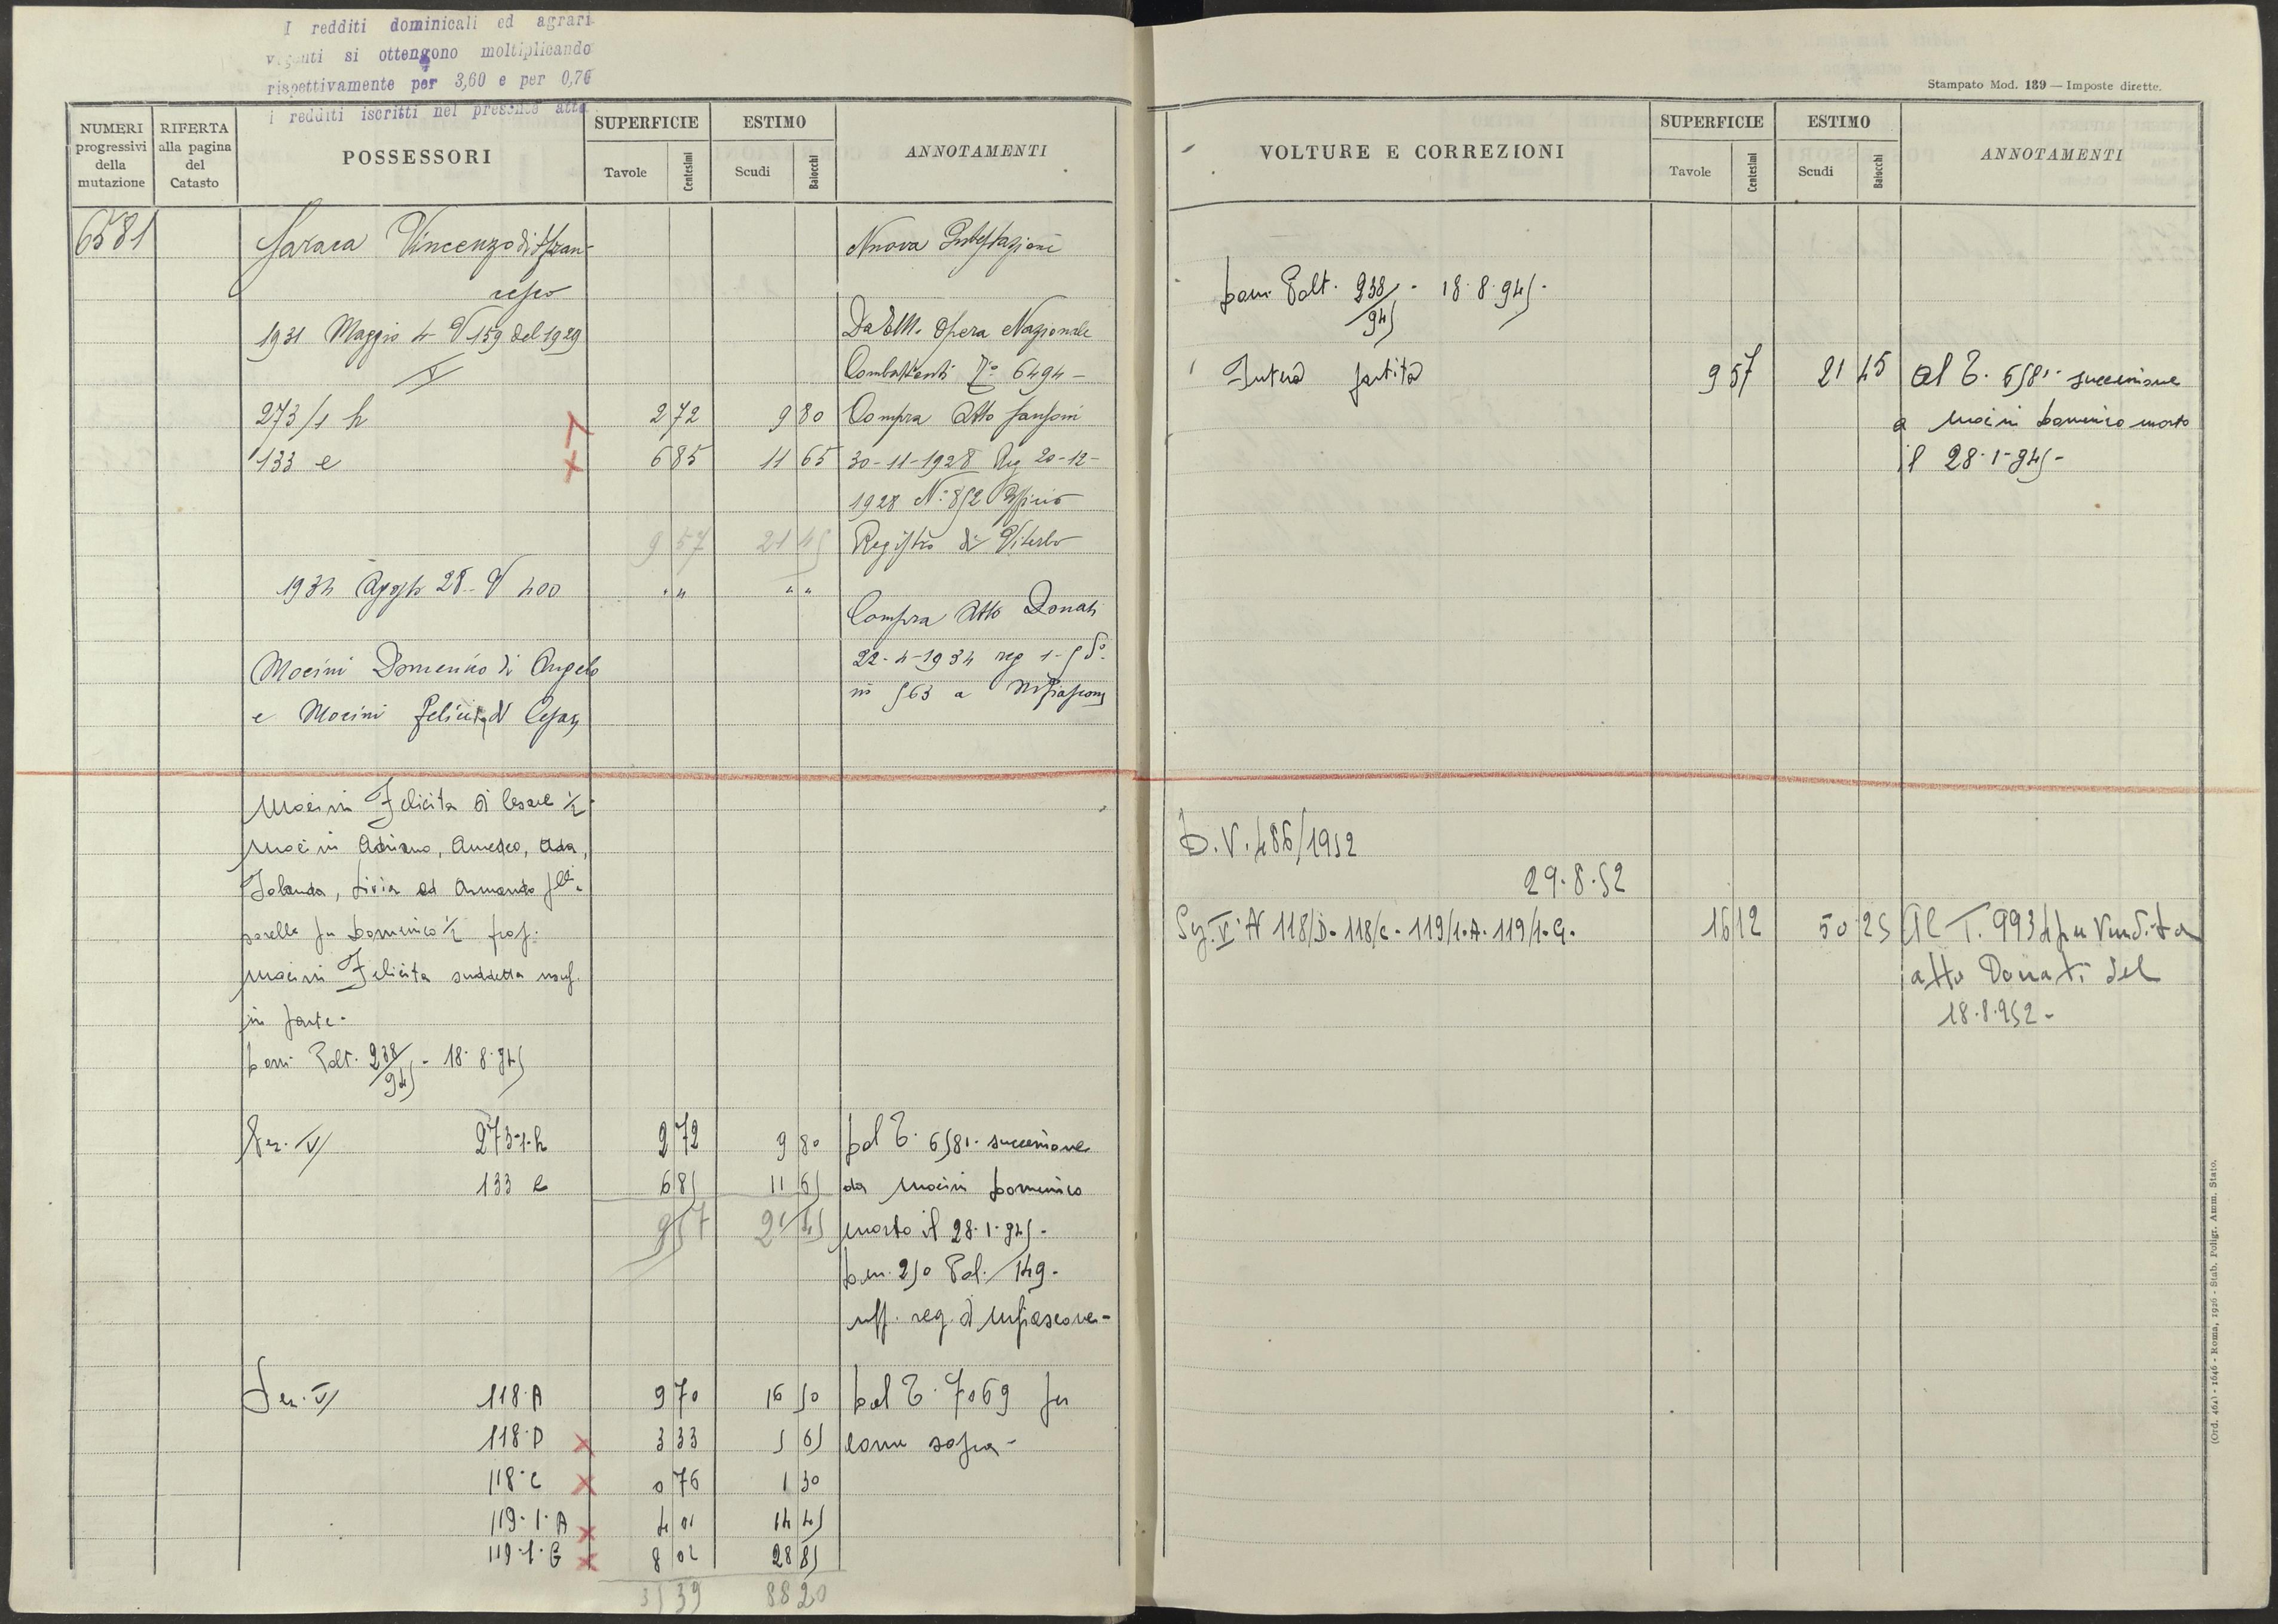 I redditi dominicali ed agrari
vigenti si ottengono moltiplicando
rispettivamente per 3,60 e per 0,70
i redditi iscritti nel presente atto
NUMERI progressivi della mutazione
RIFERTA alla pagina del Catasto
POSSESSORI
SUPERFICIE
Tavole Centesimi
ESTIMO
Scudi Baiocchi
ANNOTAMENTI
6581 Saraca Vincenzo di Fran- Nuova Intestazione
cesco
1931 Maggio 4 V 159 del 1929 Da E.M. Opera Nazionale
V Combattenti N° 6494 -
273/1 h 2 72 9 80 Compra Atto
133 e 6 85 11 65 30-11-1928 Reg 20-12-
1928 N° 852 Ufficio
9 57 21 45 Registro di Viterbo
1934 Agosto 28 V 400 " " " "
Compra Atto Donati
Mocini Domenico di Angelo 22-4-1934 reg 1-5 d°
e Mocini Felicita di Cesare n 563 a Mfiascone
Mocini Felicita di Cesare ½
Mocini Adriano, Amedeo, Ada,
Iolanda, Livia ed Armando flli
sorelle fu Domenico ½ prop.
Mocini Felicita suddetta usuf.
in parte -
Dom. Volt. 238/945 - 18.8.945
Sez. V 273-1-h 2 72 9 80 Dal T. 6581 successione
133 e 6 85 11 65 da Mocini Domenico
9 57 21 45 morto il 28.1.945 -
Den. 250 Vol. 149 -
uff. reg. di Mfiascone -
Sez. V 118-A 9 70 16 50 Dal T. 7069 per
118-D 3 33 5 65 come sopra -
118-C 0 76 1 30
119-1-A 4 01 14 45
119-1-G 8 02 28 85
35 39 88 20
Stampato Mod. 139 — Imposte dirette.
VOLTURE E CORREZIONI
SUPERFICIE
Tavole Centesimi
ESTIMO
Scudi Baiocchi
ANNOTAMENTI
Dom. Volt. 238/945 - 18.8.945 -
Intera partita 9 57 21 45 Al T. 6581 successione
a Mocini Domenico morto
il 28-1-945 -
D.V. 486/1952
29.8.52
Sez. V N 118/D - 118/C - 119/1-A - 119/1-G - 16 12 50 25 Al T. 9934 per Vendita
atto Donati del
18.8.952 -
(Ord. 461) - 1646 - Roma, 1926 - Stab. Poligr. Amm. Stato.